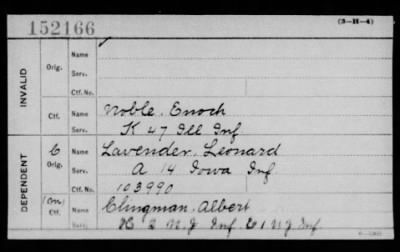 152166
(3-H-4)
INVALID
Orig.
Name
Serv.
Ctf. No.
Ctf.
Name Noble. Enoch
Serv. K 47 Ill Inf
DEPENDENT
C
Orig.
Name Lavender. Leonard
Serv. A 14 Iowa Inf
Ctf. No. 103990
Ctf.
Name Clingman. Albert
2 N.J. Inf. 1 N.J. Inf